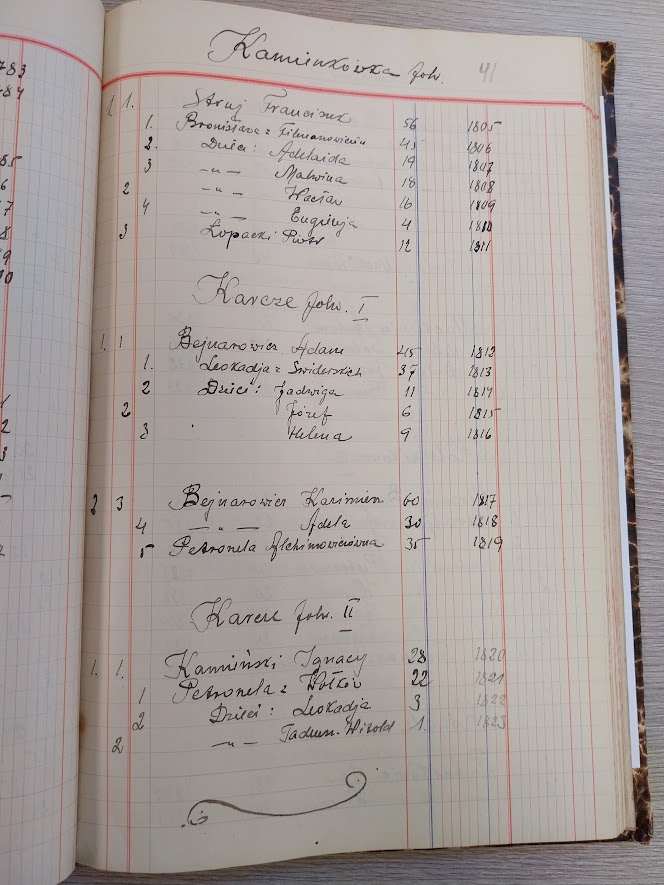 Kamienkówka folw. 41
1 1. Struj Franciszek 56 1805
1. Bronisława z Filmanowiczów 45 1806
2. Dzieci: Adelaida 19 1807
3 -„- Malwina 18 1808
2 -„- Wacław 16 1809
4 -„- Eugenja 4 1810
3 Łopacki Piotr 12 1811
Karcze folw. I
1. 1 Bejnarowicz Adam 45 1812
1. Leokadja z Świderskich 37 1813
2 Dzieci: Jadwiga 11 1814
2 Józef 6 1815
3 Helena 9 1816
2 3 Bejnarowicz Kazimierz 60 1817
4 -„- Adela 30 1818
5 Petronela Alchimowiczówna 35 1819
Karcze folw. II
1. 1. Kamiński Ignacy 28 1820
1 Petronela z Hołków 22 1821
2 Dzieci: Leokadja 3 1822
2 -„- Tadeusz Witold 1. 1823
783
784
85
6
7
8
9
0